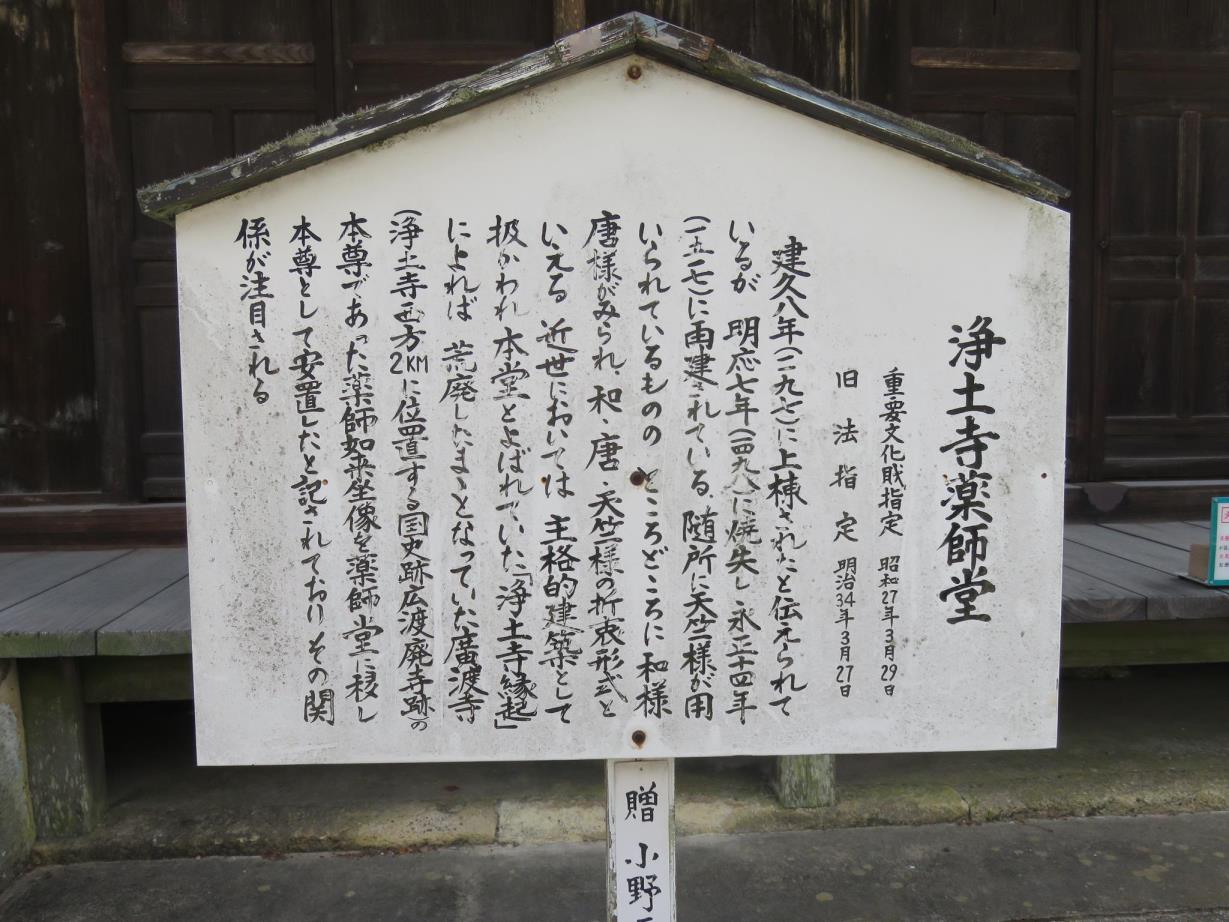 浄土寺薬師堂
重要文化財指定 昭和27年3月29日
旧法指定 明治34年3月27日
建久八年(一一九七)に上棟されたと伝えられて
いるが 明応七年(一四九八)に焼失し 永正十四年
(一五一七)に再建されている。随所に天竺様が用
いられているものの ところどころに和様
唐様がみられ、和、唐、天竺様の折衷形式と
いえる 近世においては 主格的建築として
扱かわれ 本堂とよばれていた「浄土寺縁起」
によれば 荒廃したまゝとなっていた廣渡寺
(浄土寺西方2KMに位置する国史跡広渡廃寺跡)の
本尊であった薬師如来坐像を薬師堂に移し
本尊として安置したと記されており その関
係が注目される
贈 小野